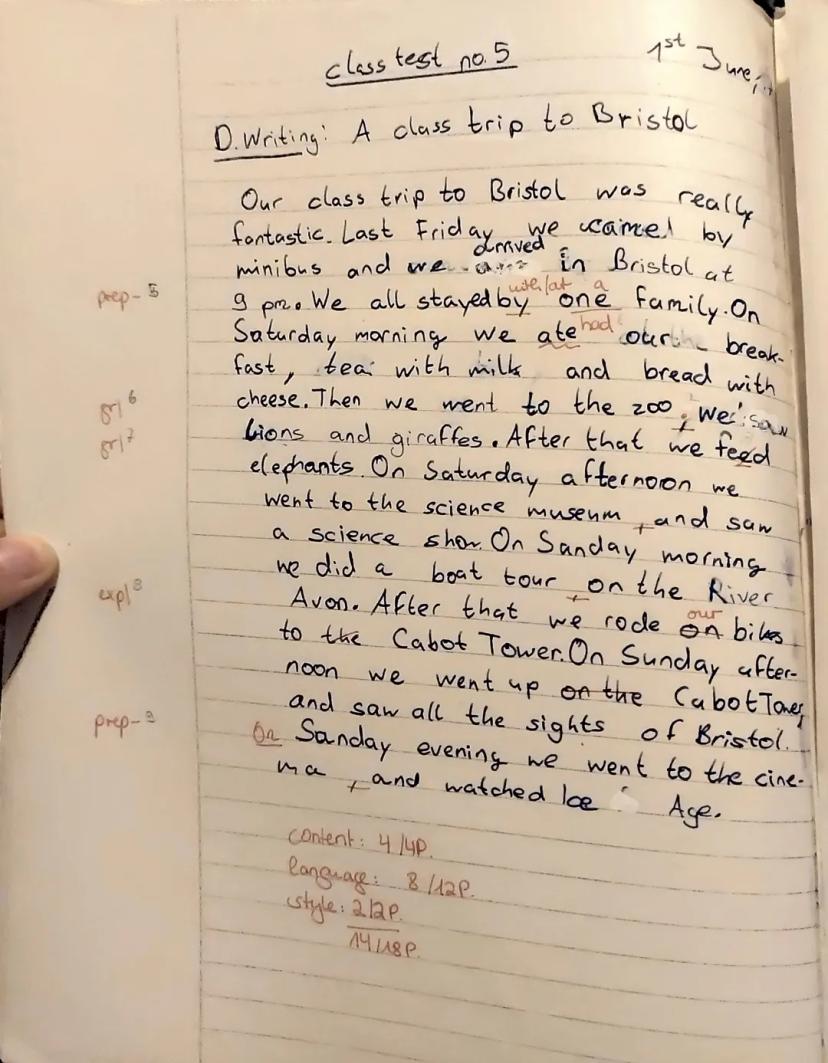 class test no. 5
1st June,
D. Writing: A class trip to Bristol
Our class trip to Bristol was really
fantastic. Last Friday we camel by
arrived
minibus and we in Bristol at
with/at a
prep- 5
9 pm. We all stayed by one family. On
had
Saturday morning we ate our break-
fast, tea with milk and bread with
gr/ 6
cheese. Then we went to the zoo, we saw
gr/ 7
Lions and giraffes. After that we feed
elephants. On Saturday afternoon we
went to the science museum, and saw
a science show. On Sanday morning
we did a boat tour, on the River
expl 8
Avon. After that we rode on bikes
our
to the Cabot Tower. On Sunday after-
noon we went up on the Cabot Tower,
and saw all the sights of Bristol.
prep- 9
On Sanday evening we went to the cine-
ma, and watched Ice Age.
content: 4/4P.
language: 8/12P.
style: 2/2P.
14/18P.